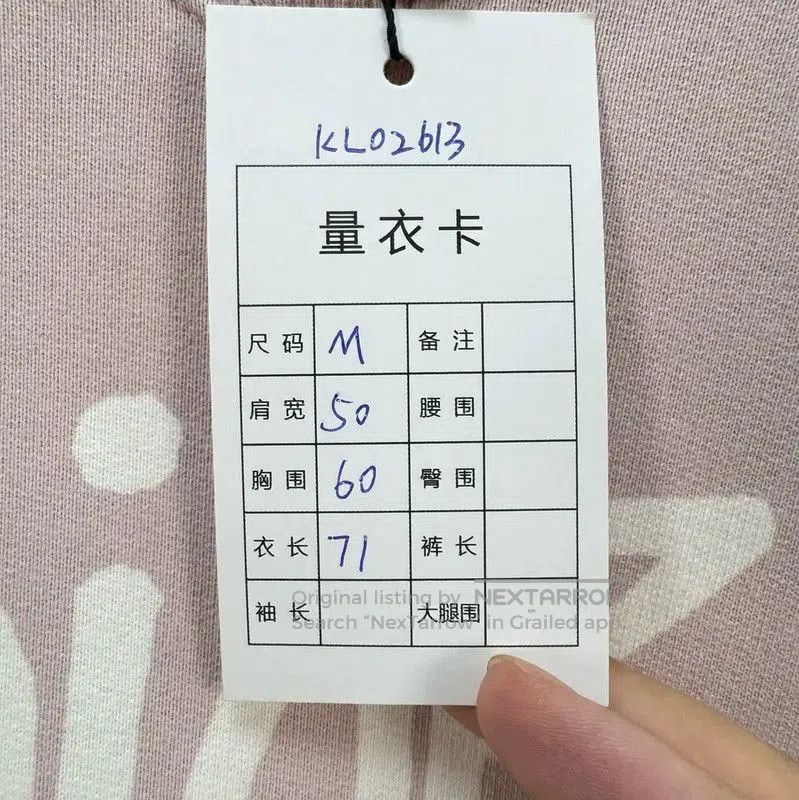 KL02613
量衣卡
尺码 M 备注
肩宽 50 腰围
胸围 60 臀围
衣长 71 裤长
袖长 大腿围
Original listing by NEXTARRO
Search "NexTarrow" in Grailed app